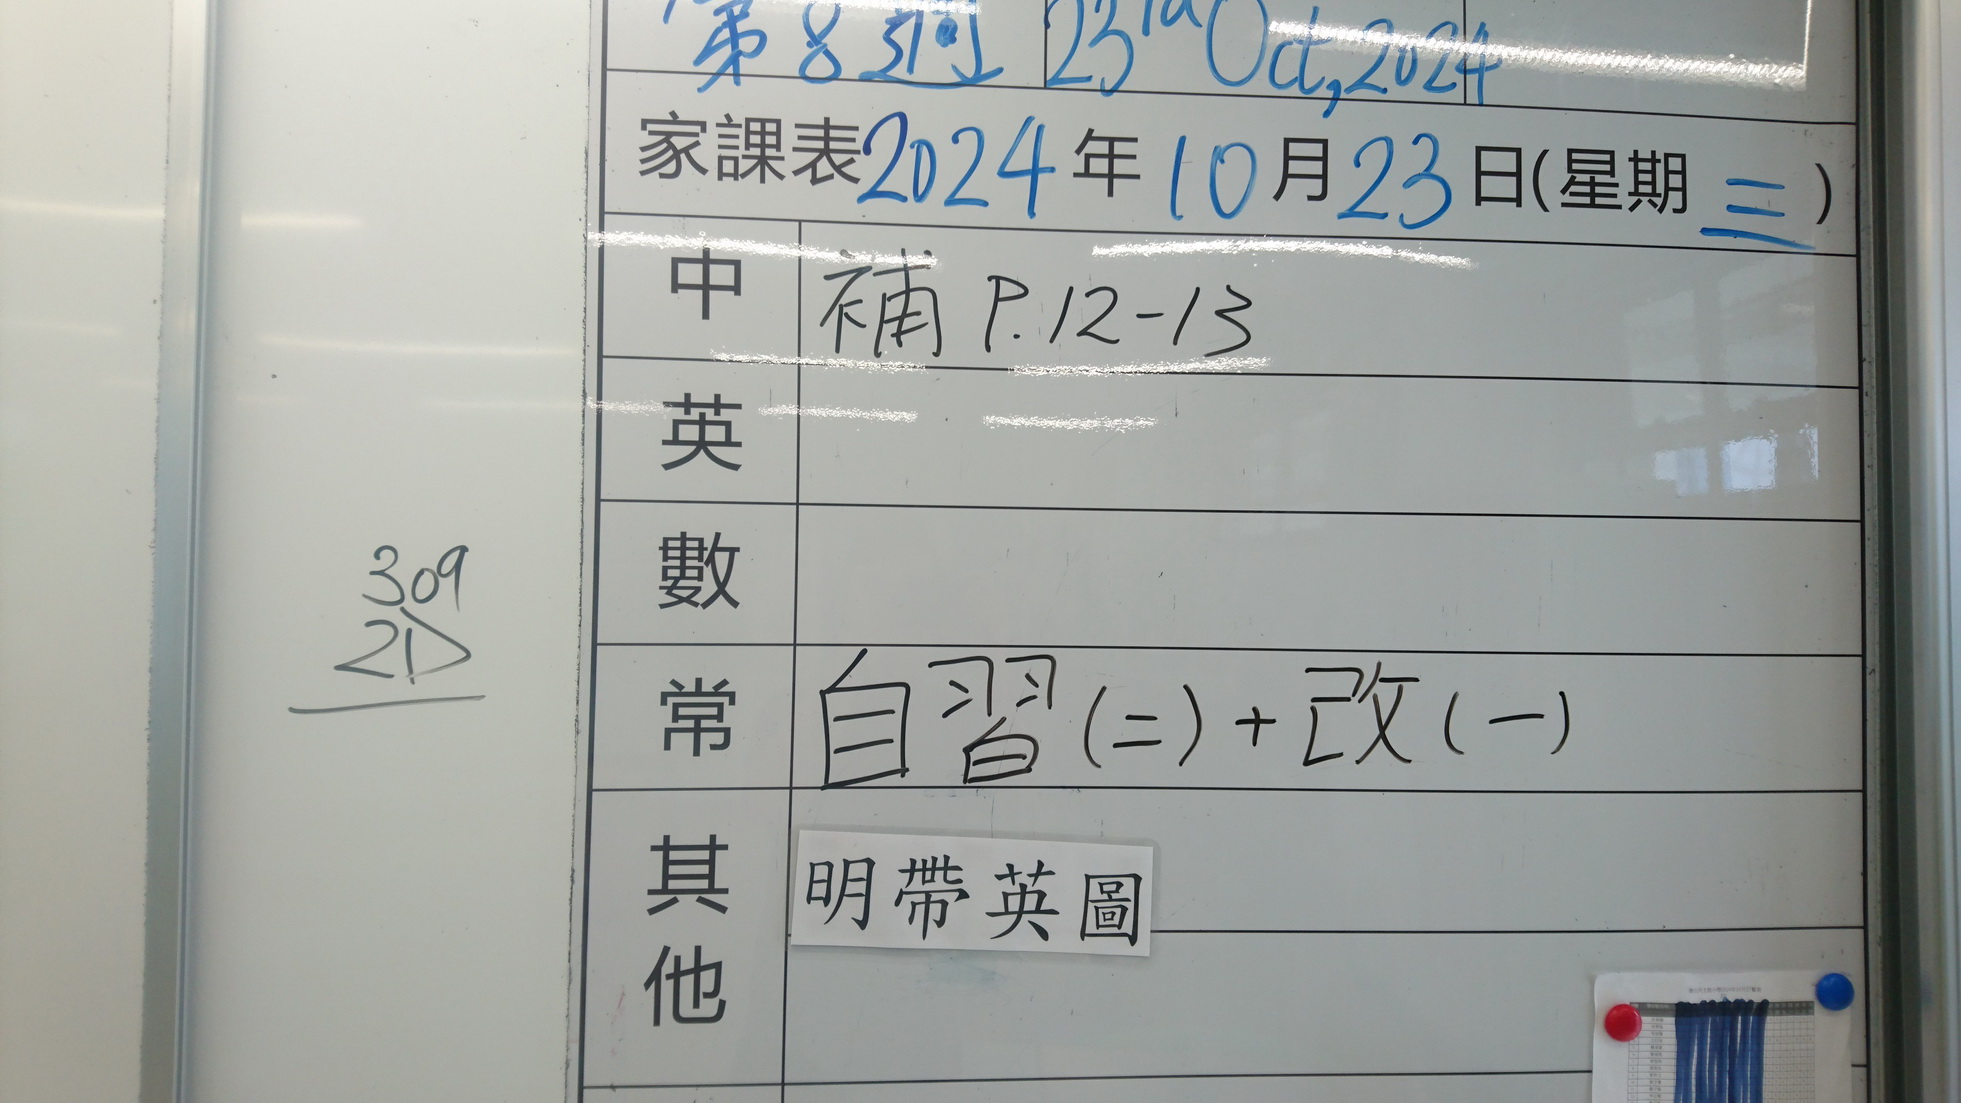 第8週 23rd Oct, 2024
家課表 2024 年 10 月 23 日(星期 三)
中 補 P.12-13
英
數
常 自習(二)+改(一)
其他 明帶英圖
309